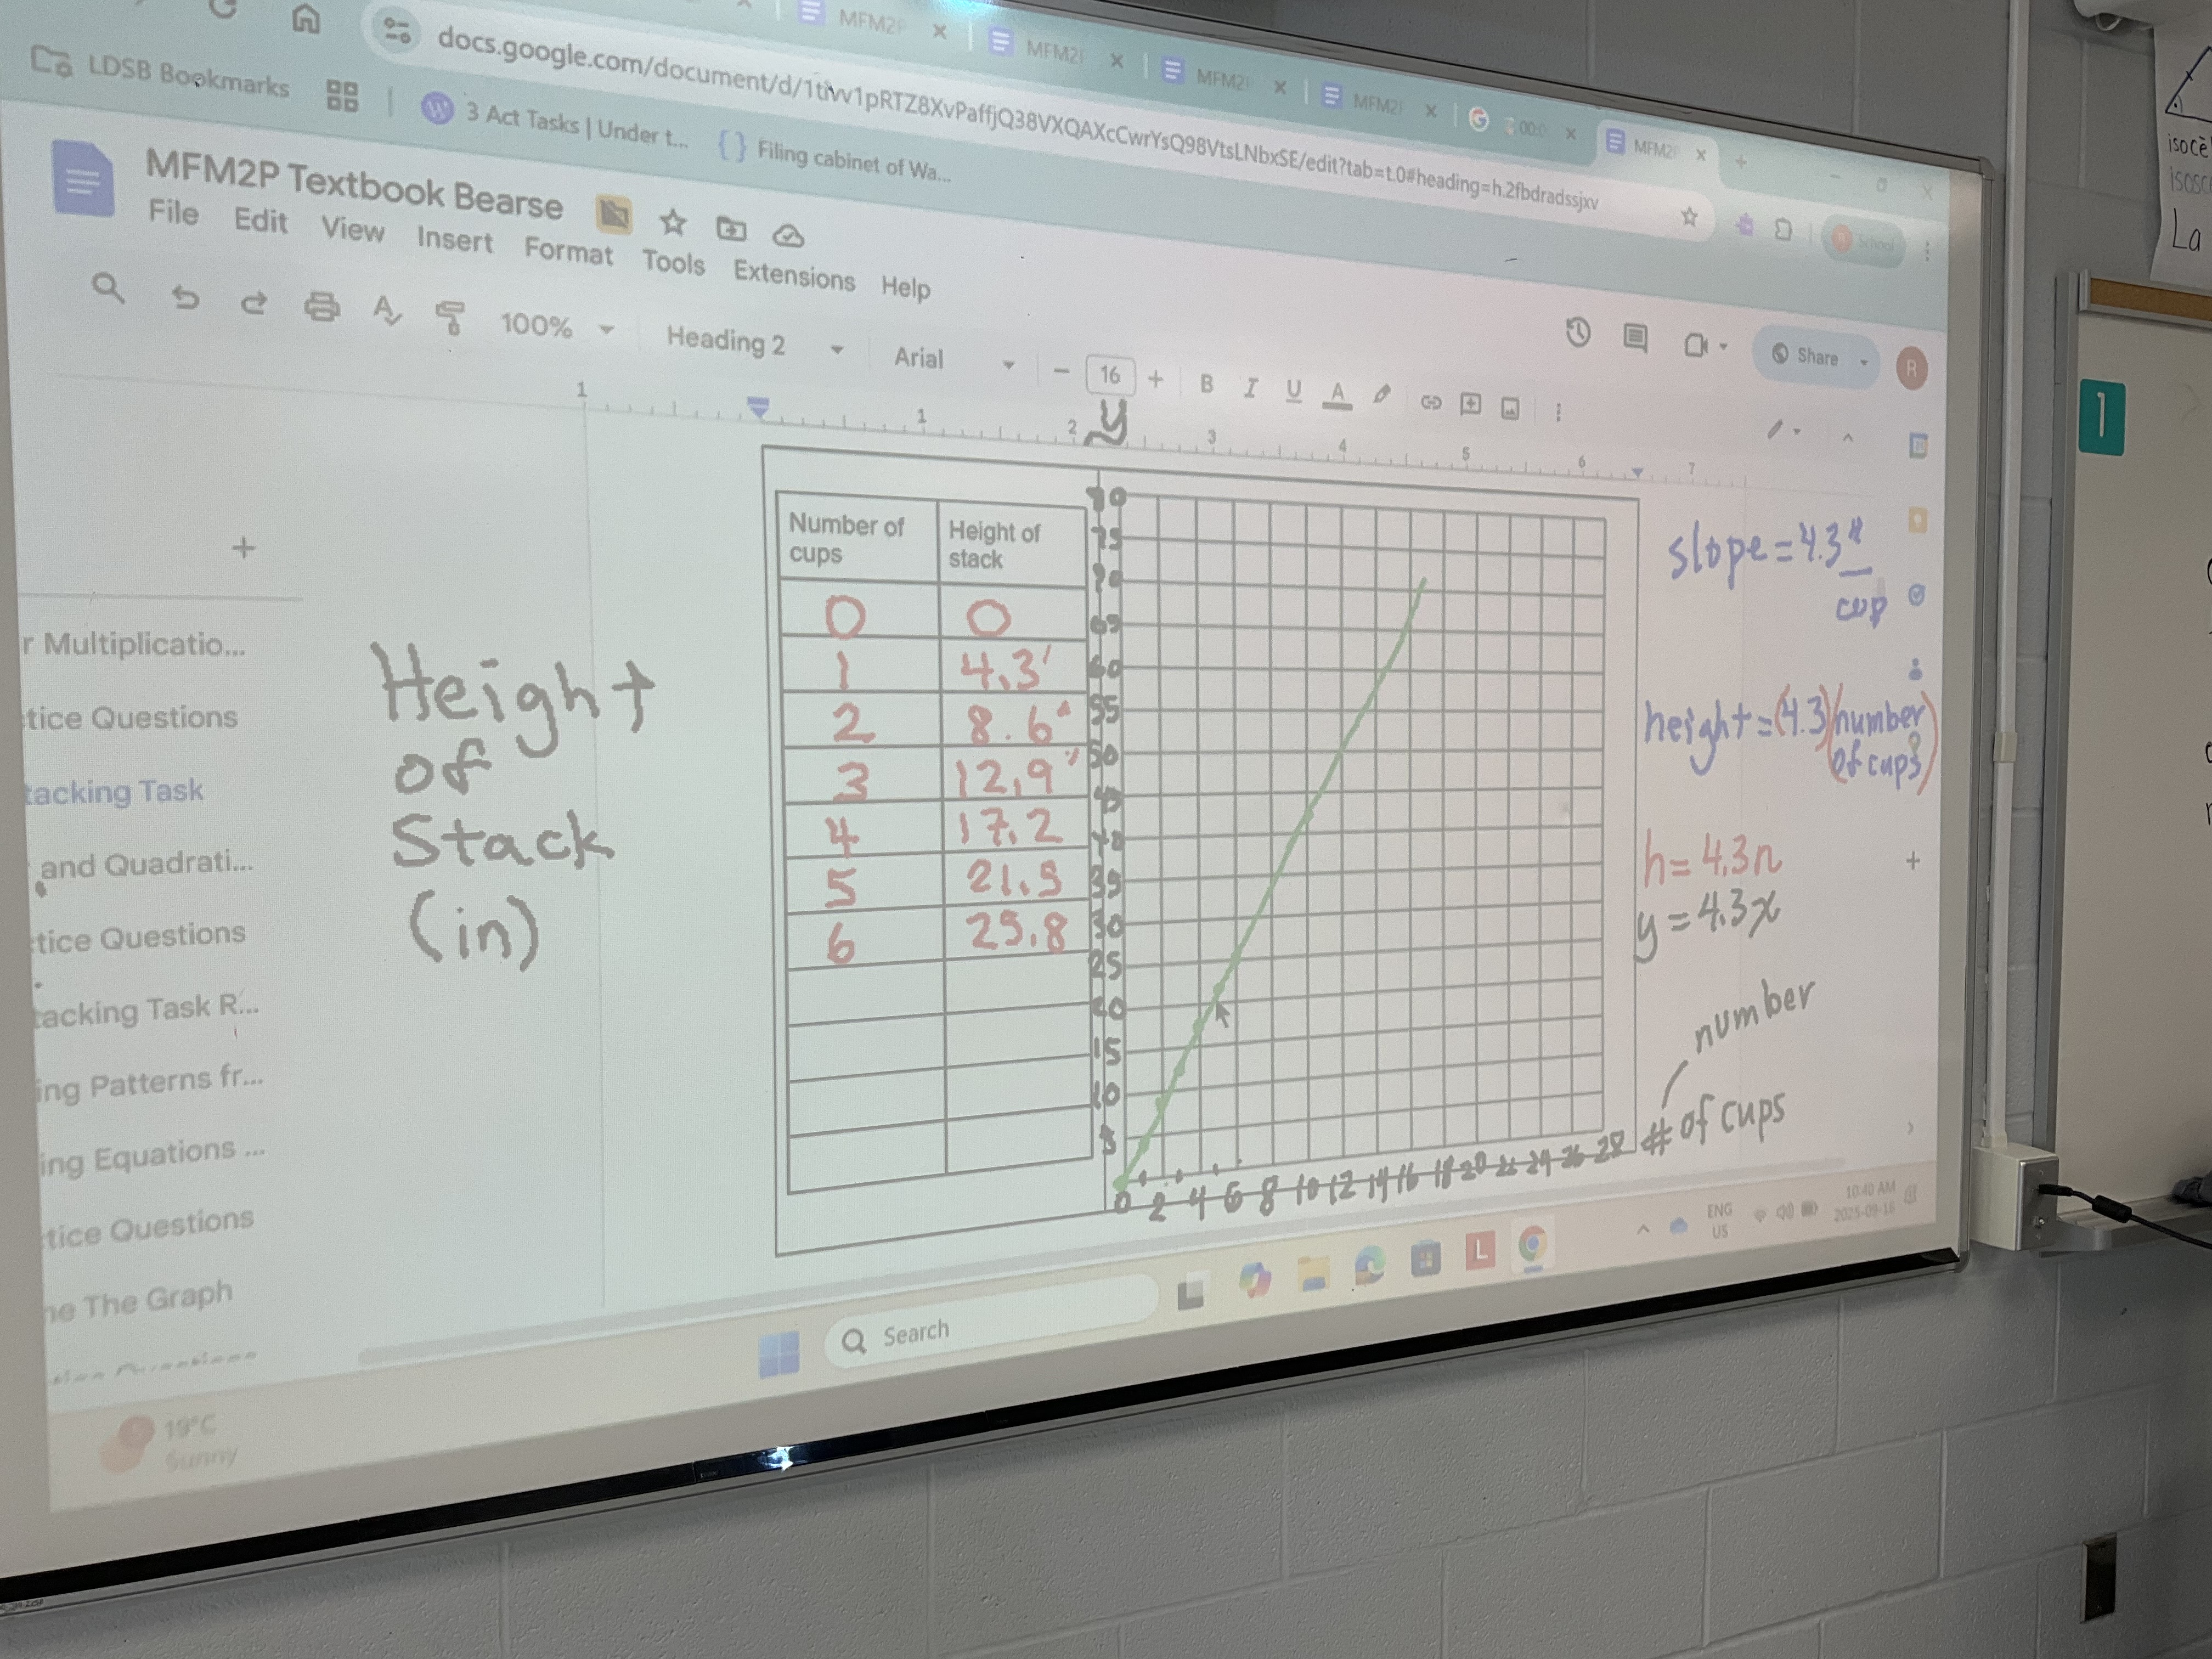 MFM2P
MFM2P
MFM2P
MFM2P
00:0
MFM2P
docs.google.com/document/d/1tivv1pRTZ8XvPaffjQ38VXQAXcCwrYsQ98VtsLNbxSE/edit?tab=t.0#heading=h.2fbdradssjxv
School
LDSB Bookmarks
3 Act Tasks | Under t...
Filing cabinet of Wa...
MFM2P Textbook Bearse
File Edit View Insert Format Tools Extensions Help
Share
R
100% Heading 2 Arial 16 B I U A
1 1 2 3 4 5 6 7
r Multiplicatio...
tice Questions
tacking Task
and Quadrati...
tice Questions
tacking Task R...
ing Patterns fr...
ing Equations ...
tice Questions
ne The Graph
Height
of
Stack
(in)
Number of cups Height of stack
0 0
1 4.3'
2 8.6"
3 12.9"
4 17.2
5 21.5
6 25.8
y
80
75
70
65
60
55
50
45
40
35
30
25
20
15
10
5
0 2 4 6 8 10 12 14 16 18 20 22 24 26 28
# of cups
number
slope = 4.3"
cup
height = (4.3)(number
of cups)
h = 4.3n
y = 4.3x
19°C
Sunny
Search
L
ENG
US
10:40 AM
2025-09-16
1
isocè
isosc
La